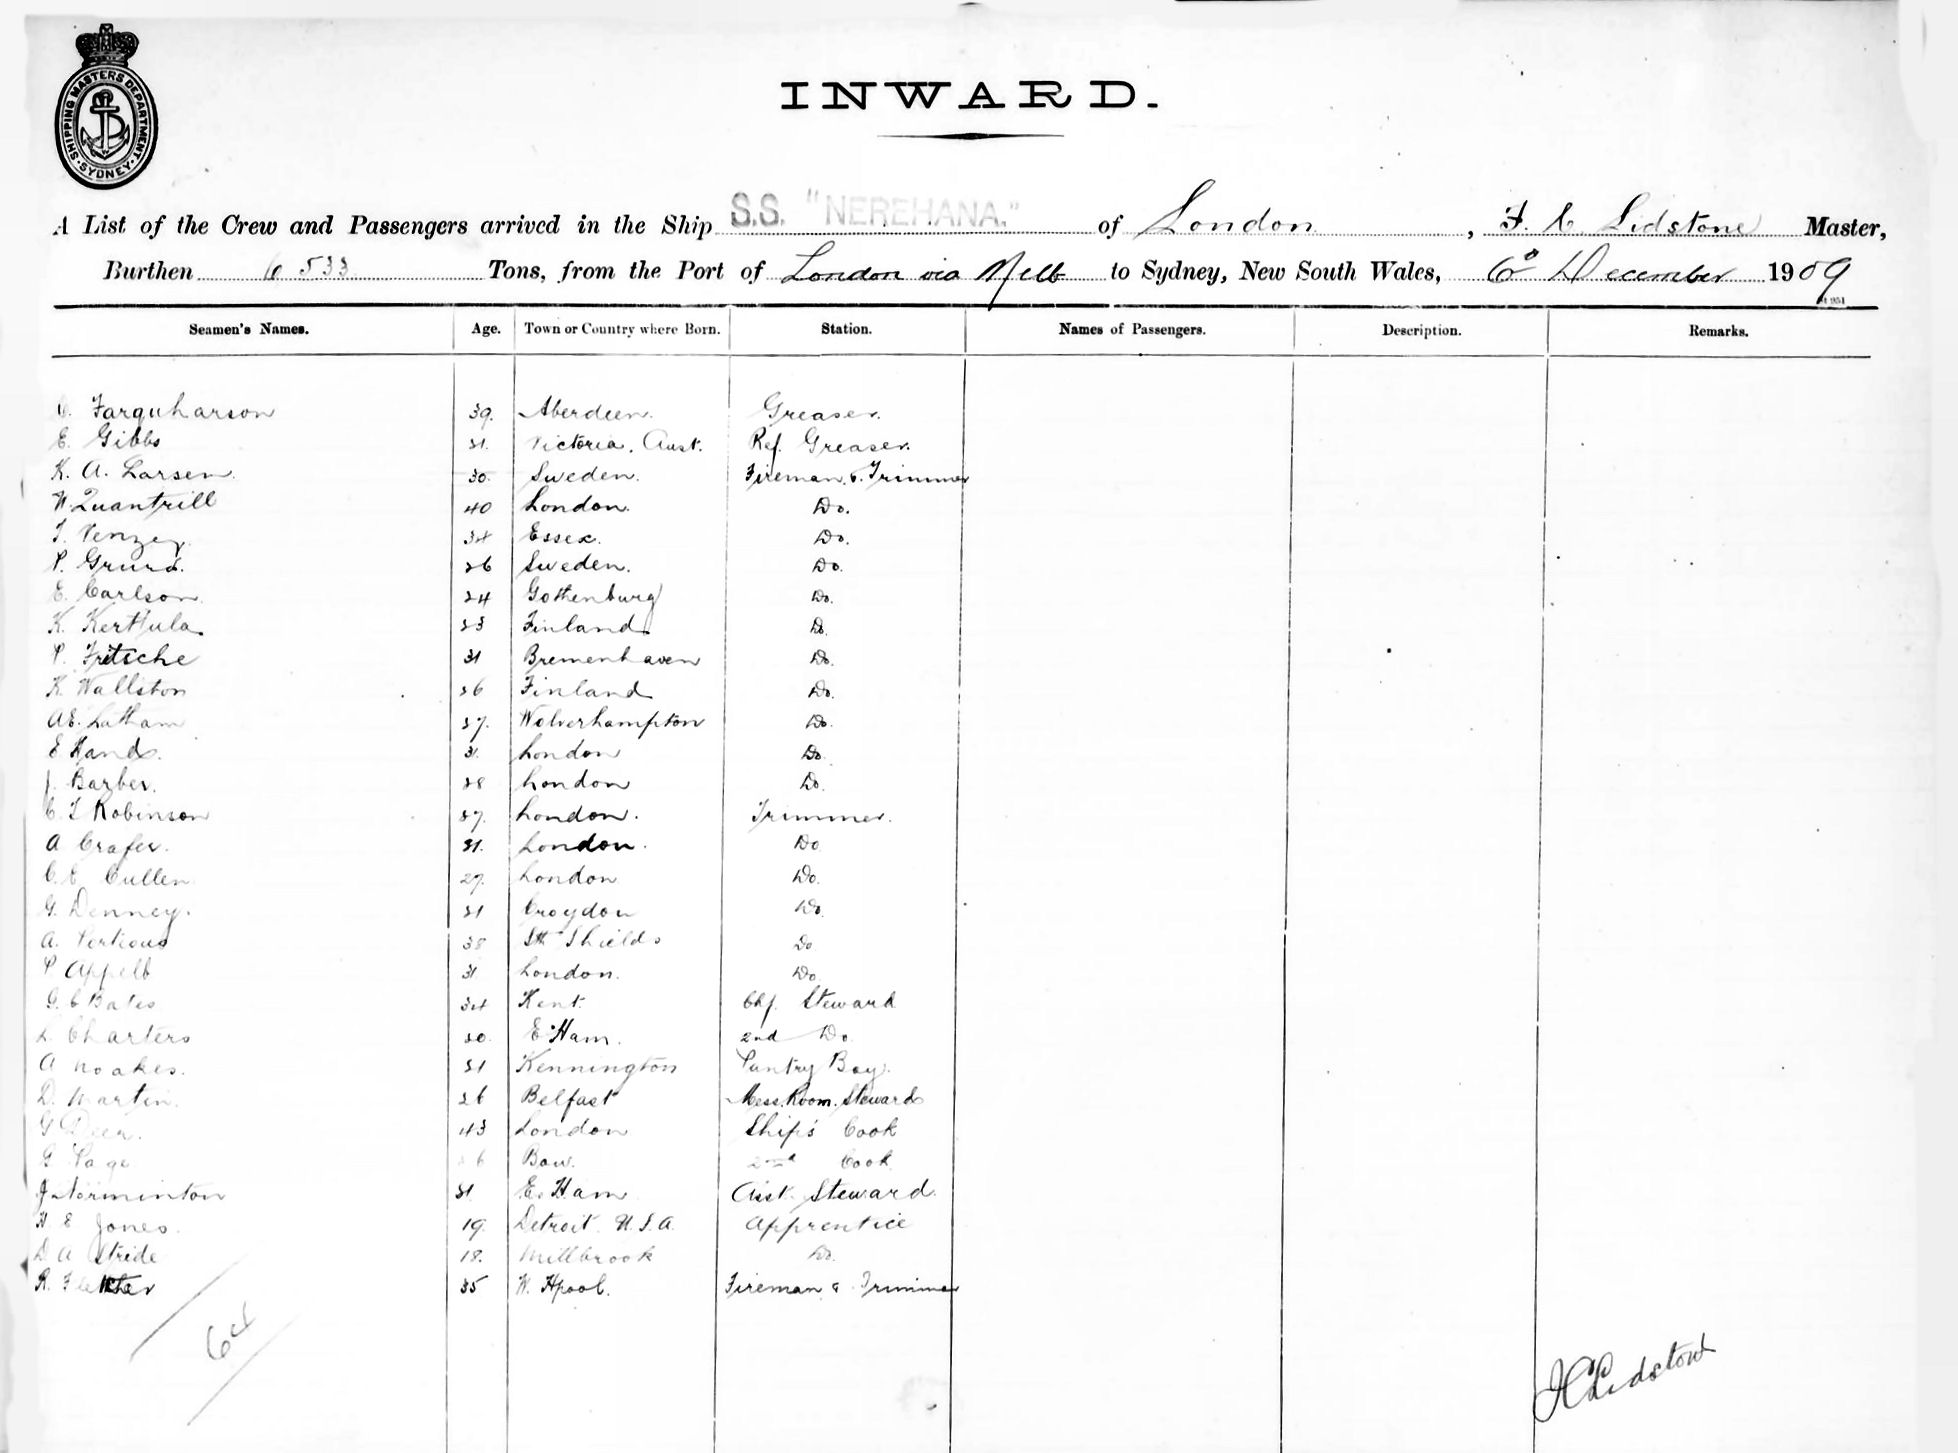 SHIPPING MASTERS DEPARTMENT. SYDNEY.
INWARD.
A List of the Crew and Passengers arrived in the Ship S.S. "NEREHANA." of London, F. C. Lidstone Master,
Burthen 6533 Tons, from the Port of London via Melb to Sydney, New South Wales, 6th December 1909
Seamen's Names. Age. Town or Country where Born. Station. Names of Passengers. Description. Remarks.
Farquharson 39. Aberdeen. Greaser.
E. Gibbs Victoria, Aust. Ref. Greaser.
K. A. Larsen. 30. Sweden. Fireman & Trimmer
W. Quantrill 40 London. Do.
Venzey. 34 Essex. Do.
P. 26 Sweden. Do.
E. Carlson. 24 Gothenburg Do.
K. Kerttula 23 Finland Do.
P. Fritsche 31 Bremenhaven Do.
K. Wallston 26 Finland Do.
A.E. Latham 27. Wolverhampton Do.
E Hands. 31. London Do.
J. Barber. 28 London Do.
Robinson London. Trimmer.
A Crafer. 21. London. Do
C. E Cullen. 27. London Do.
G. Denney. 21 Croydon Do.
A. Porteous 38 Sth Shields Do
P Appelb 31 London. Do.
G. C Bates 34 Kent. Chf. Steward
L. Charters E. Ham. 2nd Do.
A Noakes. 21 Kennington Pantry Boy.
D. Martin. 26 Belfast Mess. Room. Steward
G Deer. 43 London Ship's Cook
G Page 26 Bow. 2nd Cook.
J Norminton 21. E. Ham. Asst. Steward.
H E Jones. 19. Detroit. U.S.A. Apprentice
D A Stride 18. Millbrook Do.
R. Fletcher 35 W. Hpool. Fireman & Trimmer
64
F C Lidstone